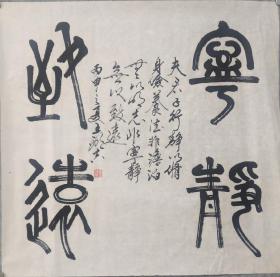 寧靜
致遠
夫君子行靜以脩
身儉養德非澹泊
無以明志非寧靜
無以致遠
丙申之夏